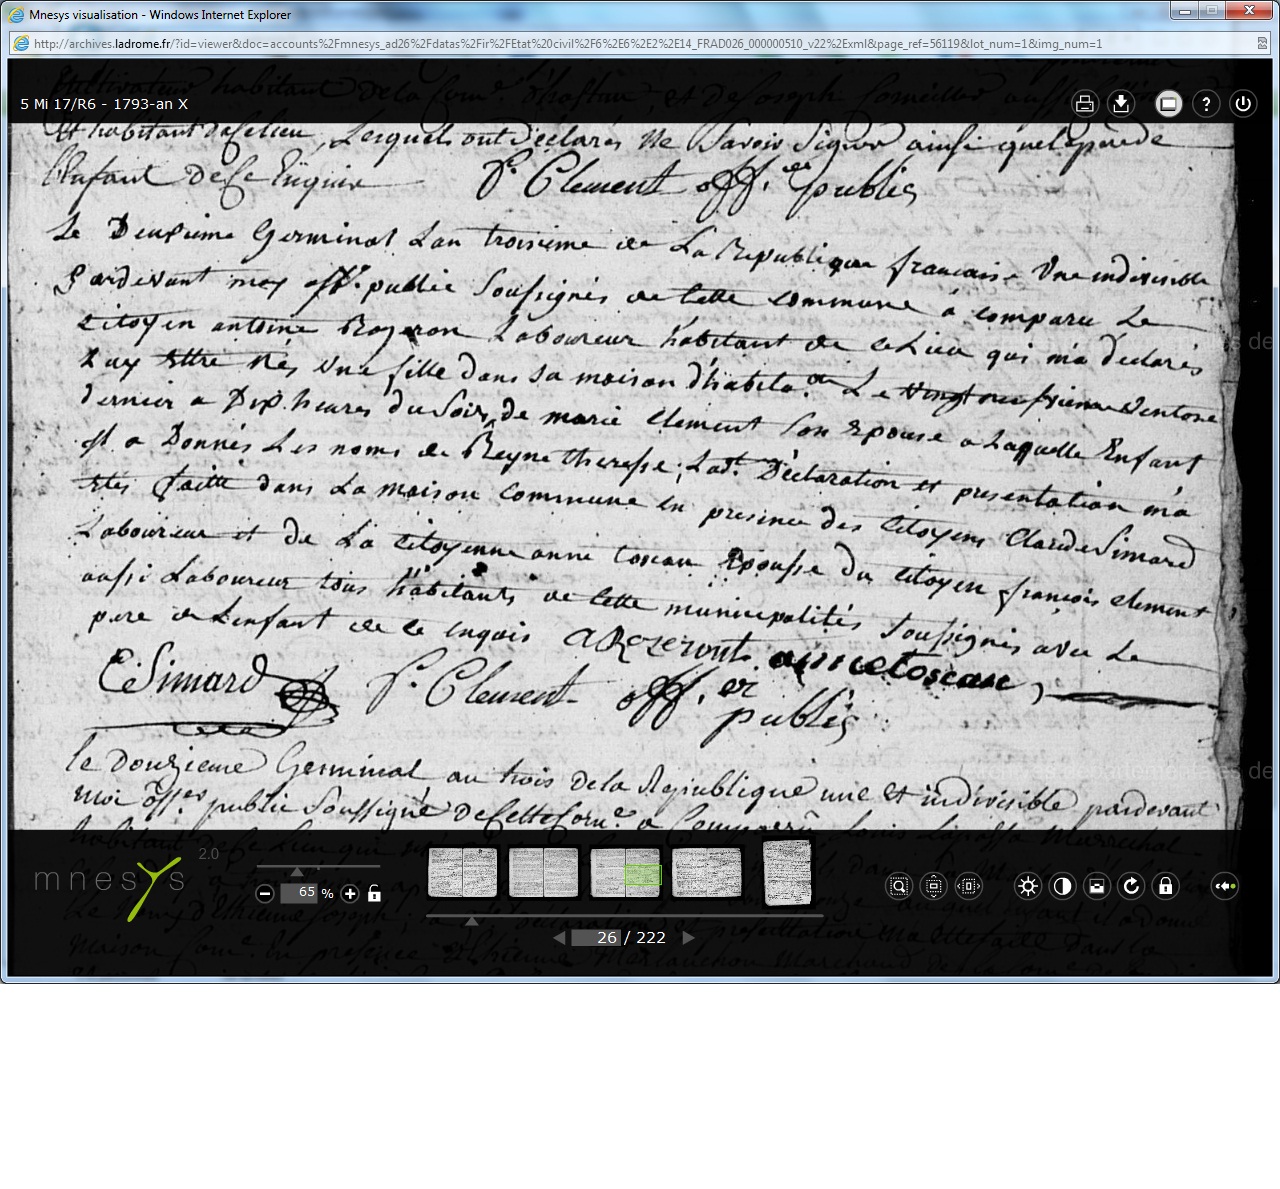 Mnesys visualisation - Windows Internet Explorer
http://archives.ladrome.fr/?id=viewer&doc=accounts%2Fmnesys_ad26%2Fdatas%2Fir%2FEtat%20civil%2F6%2E6%2E2%2E14_FRAD026_000000510_v22%2Exml&page_ref=56119&lot_num=1&img_num=1
5 Mi 17/R6 - 1793-an X
?
Et habitant de ce lieu, Lesquels ont déclarés ne Savoir Signer ainsi que le père de
l'Enfant De Ce Enquis P. Clement off.er publis
Le Deuxieme Germinal Lan troisieme de La Republique francaise une indivisible
Pardevant moy off.r public Soussignés de Cette commune à comparu Le
Citoyen antoine Rozeron Laboureur habitant de ce Lieu qui m'a declarés
Luy Ettre Nés une fille dans sa maison d'habita.on Le vingt neufvieme Ventose
dernier a Dix heures du Soir, de marie Clement Son Epouse a Laquelle Enfant
Il a Donnés Les noms de Reyne theresse; Lad.te Déclaration et presentation m'a
Etés faitte dans La maison Commune en presence des Citoyens Claude Simard
Laboureur et de La Citoyenne anne toscan Epousse du Citoyen françois Clement
aussi Laboureur tous habitants de Cette municipalités Soussignés avec Le
pere de Lenfant de ce enquis A Rozeront anne toscan,
C Simard P. Clement off.er
publis
le Douzieme Germinal an trois de la Republique une Et indivisible pardevant
moi off.er public Soussigné De Cette Com.ne a Comparu
mnesys 2.0
65 %
26 / 222